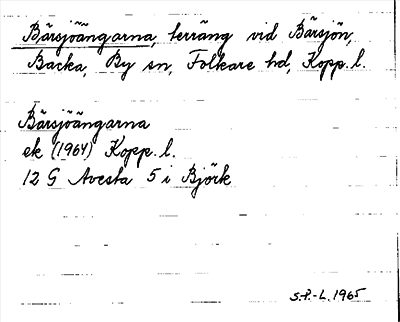 Bärsjöängarna, terräng vid Bärsjön,
Backa, By sn, Folkare hd, Kopp. l.
Bärsjöängarna
ek (1964) Kopp. l.
12 G Avesta 5 i Björk
S.P.-L. 1965